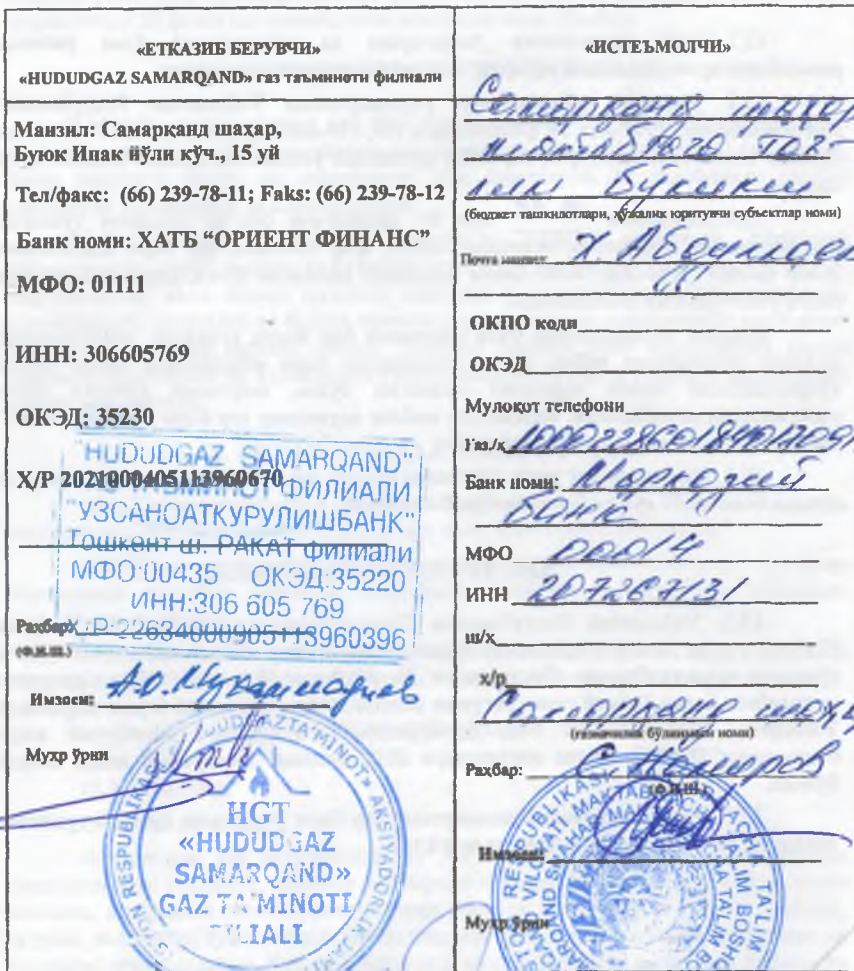 «ЕТКАЗИБ БЕРУВЧИ»
«HUDUDGAZ SAMARQAND» газ таъминоти филиали
Манзил: Самарқанд шаҳар,
Буюк Ипак йўли кўч., 15 уй
Тел/факс: (66) 239-78-11; Faks: (66) 239-78-12
Банк номи: ХАТБ “ОРИЕНТ ФИНАНС”
МФО: 01111
ИНН: 306605769
ОКЭД: 35230
Х/Р 20210000405113960670
"HUDUDGAZ SAMARQAND"
ФИЛИАЛИ
"УЗСАНОАТКУРУЛИШБАНК"
Тошкент ш. РАКАТ филиали
МФО:00435 ОКЭД:35220
ИНН:306 605 769
Х/Р:22634000905113960396
Раҳбар:
(Ф.И.Ш.)
Имзоси: А.О. Мухаммадиев
Муҳр ўрни
HGT
«HUDUDGAZ
SAMARQAND»
GAZ TA'MINOTI
FILIALI
«ИСТЕЪМОЛЧИ»
Самарқанд шаҳар
мактабгача таъ-
лим бўлими
(бюджет ташкилотлари, хўжалик юритувчи субъектлар номи)
Почта манзил: Х. Абдуллаев
ОКПО коди
ОКЭД
Мулоқот телефони
Ғаз/ҳ
Банк номи: Марказий
банк
МФО 00014
ИНН 207267131
ш/ҳ
х/р
Самарқанд шаҳар
(ғазначилик бўлинмаси номи)
Раҳбар:
(Ф.И.Ш.)
Имзоси:
Муҳр ўрни